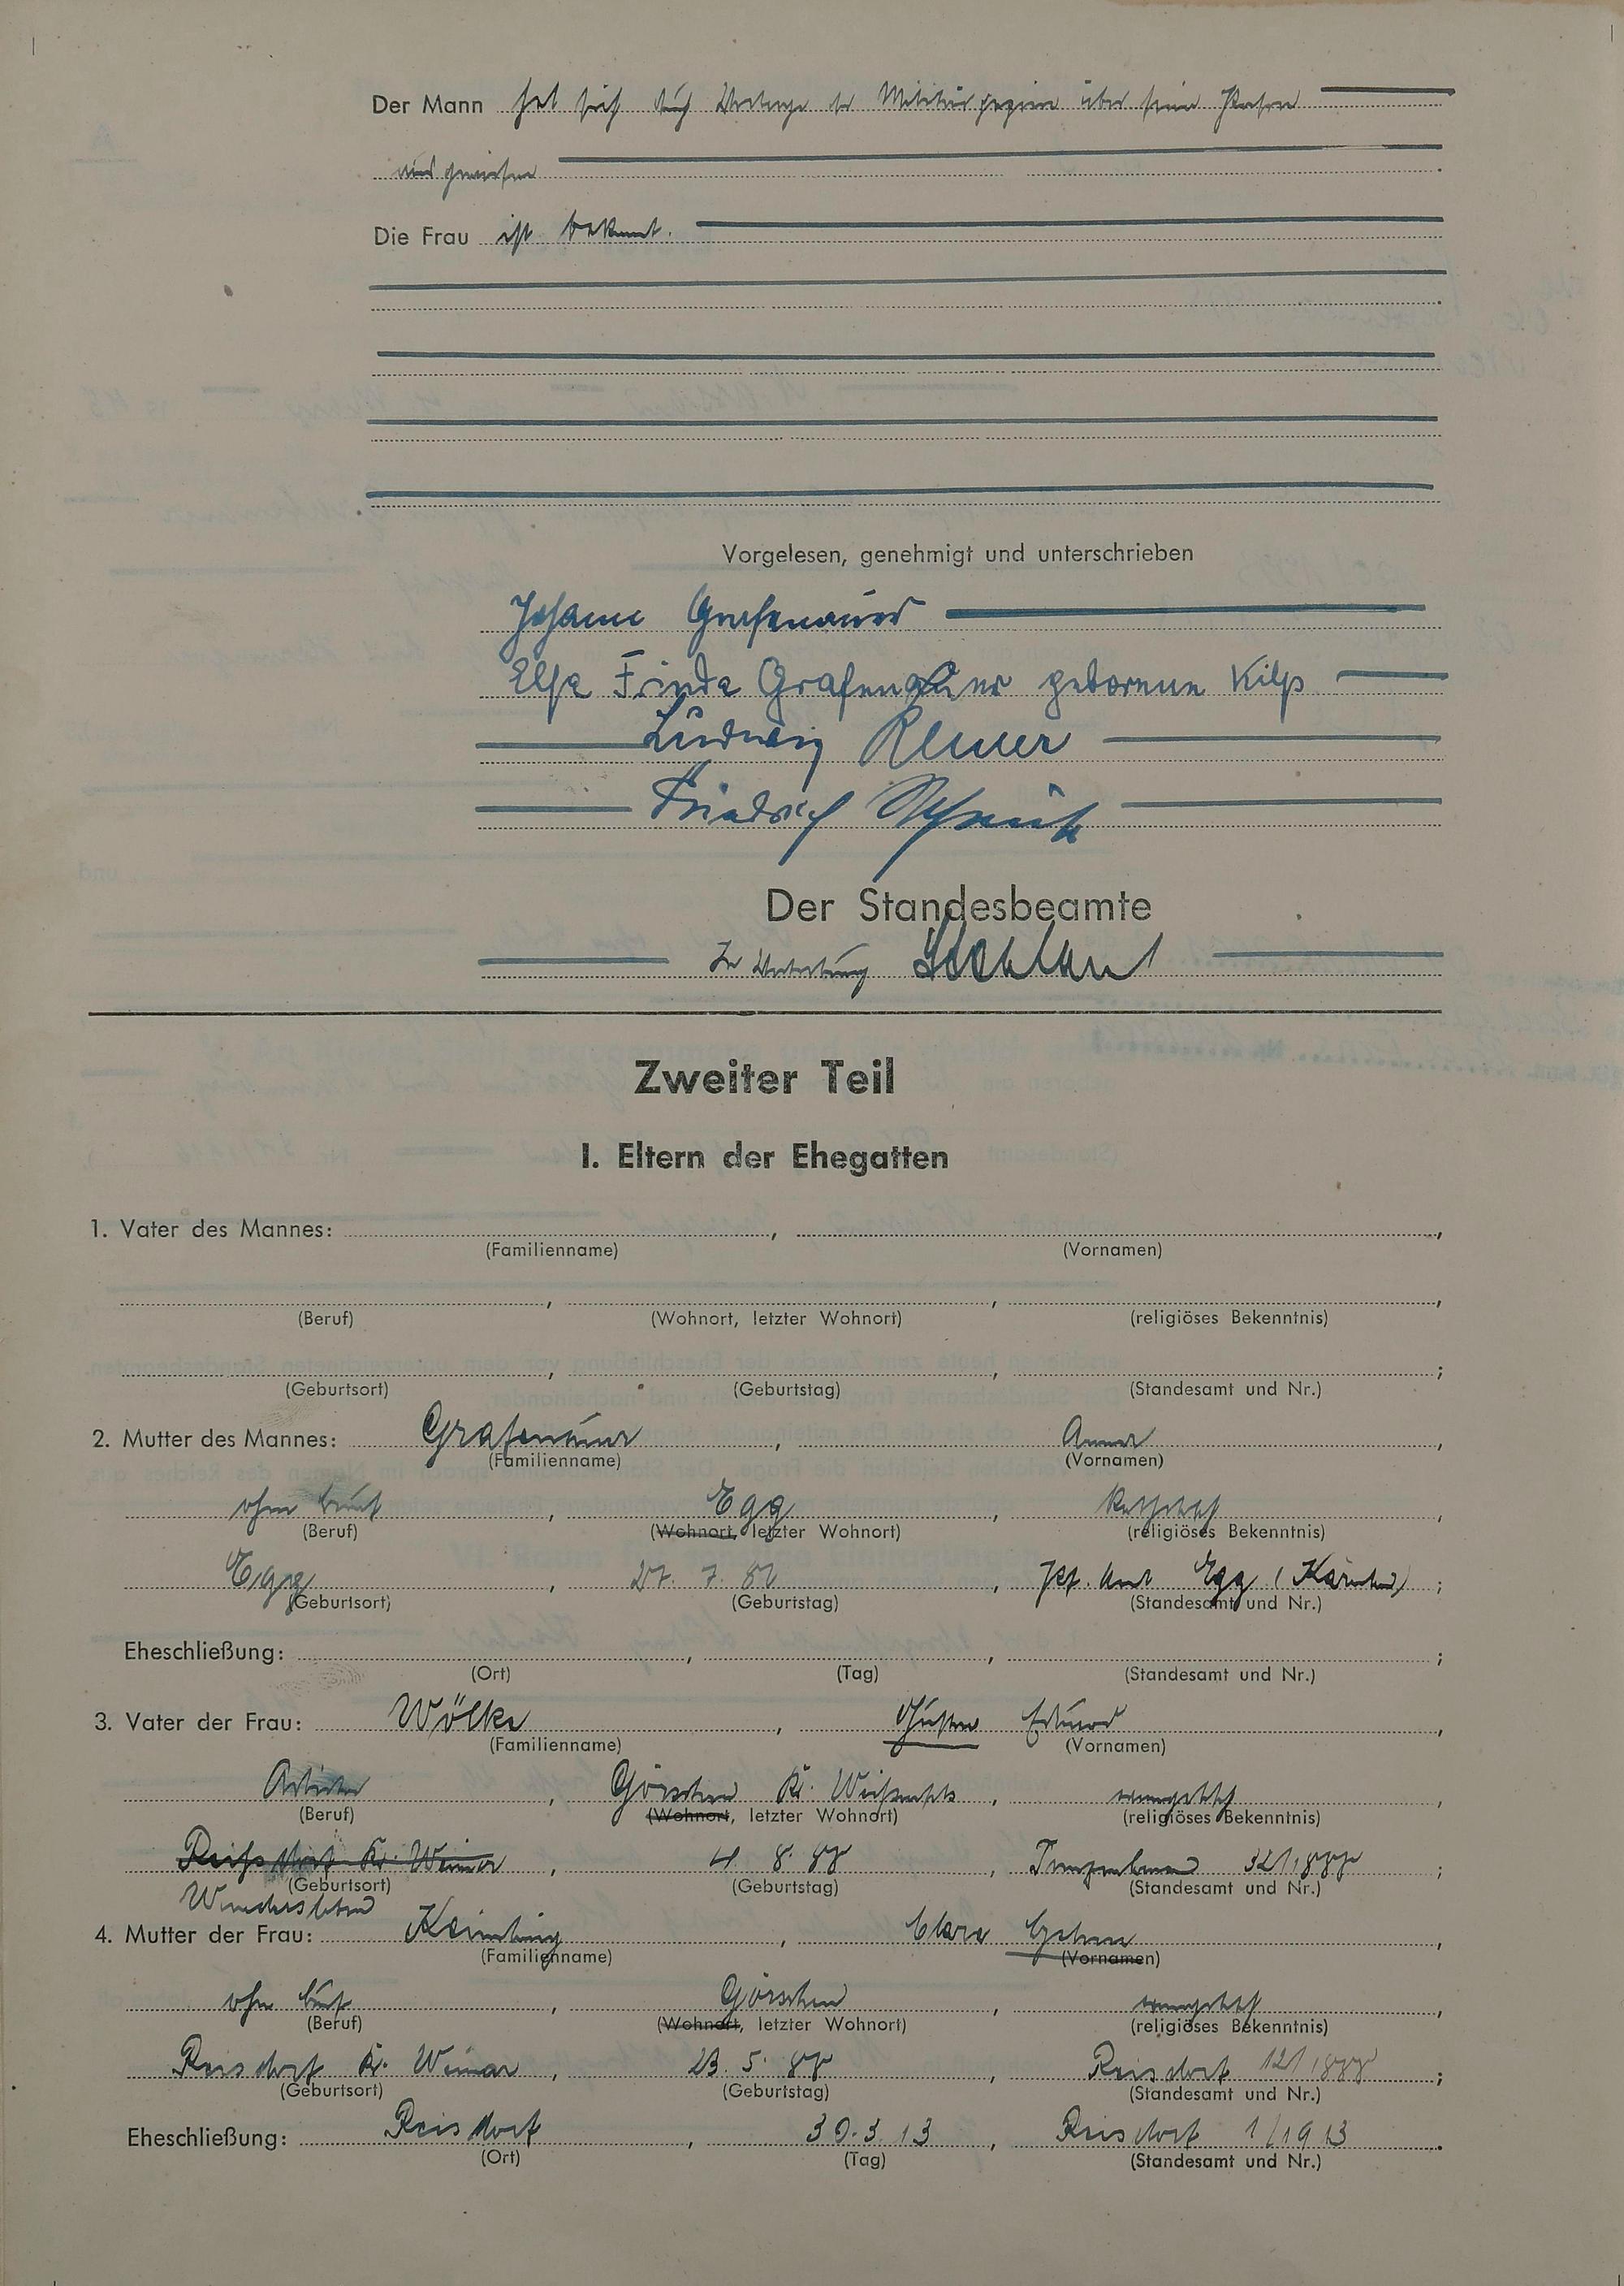 Der Mann hat sich durch Vorlage der Militärpapiere über seine Person
ausgewiesen
Die Frau ist bekannt.
Vorgelesen, genehmigt und unterschrieben
Johann Grafenauer
Elsa Frieda Grafenauer geborene Kilp
Ludwig
Friedrich
Der Standesbeamte
In Vertretung
Zweiter Teil
I. Eltern der Ehegatten
1. Vater des Mannes: , ,
(Familienname) (Vornamen)
, , ,
(Beruf) (Wohnort, letzter Wohnort) (religiöses Bekenntnis)
, , ;
(Geburtsort) (Geburtstag) (Standesamt und Nr.)
2. Mutter des Mannes: Grafenauer , Anna ,
(Familienname) (Vornamen)
ohne Beruf , Egg , katholisch ,
(Beruf) (Wohnort, letzter Wohnort) (religiöses Bekenntnis)
Egg , 27. 7. , Egg (Kärnten) ;
(Geburtsort) (Geburtstag) (Standesamt und Nr.)
Eheschließung: , , ;
(Ort) (Tag) (Standesamt und Nr.)
3. Vater der Frau: Wölke , Gustav Eduard ,
(Familienname) (Vornamen)
Arbeiter , Görschen Kr. Weißenfels , evangelisch ,
(Beruf) (Wohnort, letzter Wohnort) (religiöses Bekenntnis)
Kr. Weimar , 4. 8. 88 , 321/888 ;
(Geburtsort) (Geburtstag) (Standesamt und Nr.)
4. Mutter der Frau: , Clara ,
(Familienname) (Vornamen)
ohne Beruf , Görschen , evangelisch ,
(Beruf) (Wohnort, letzter Wohnort) (religiöses Bekenntnis)
Reisdorf Kr. Weimar , 23. 5. 88 , Reisdorf 121/888 ;
(Geburtsort) (Geburtstag) (Standesamt und Nr.)
Eheschließung: Reisdorf , 30. 3. 13 , Reisdorf 1/1913 .
(Ort) (Tag) (Standesamt und Nr.)